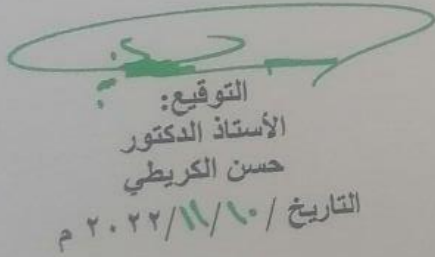 التوقيع:
الأستاذ الدكتور
حسن الكريطي
التاريخ / ١٠/ ١١/ ٢٠٢٢ م